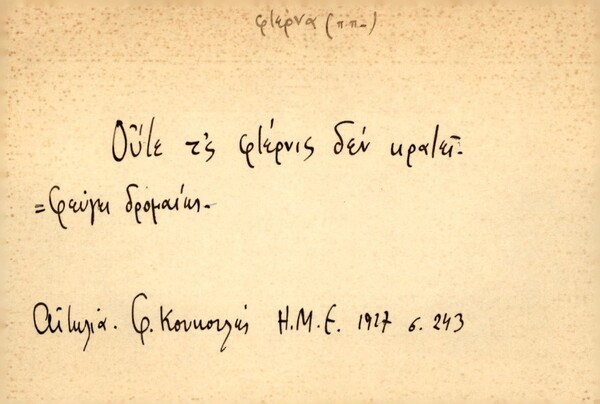 φτέρνα (π.π.-)
Οὔτε τ'ς φτέρνις δέν κρατεῖ.
= Φεύγει δρομαίως.
Αἰτωλία. Φ. Κουκουλές Η.Μ.Ε. 1927 σ. 243